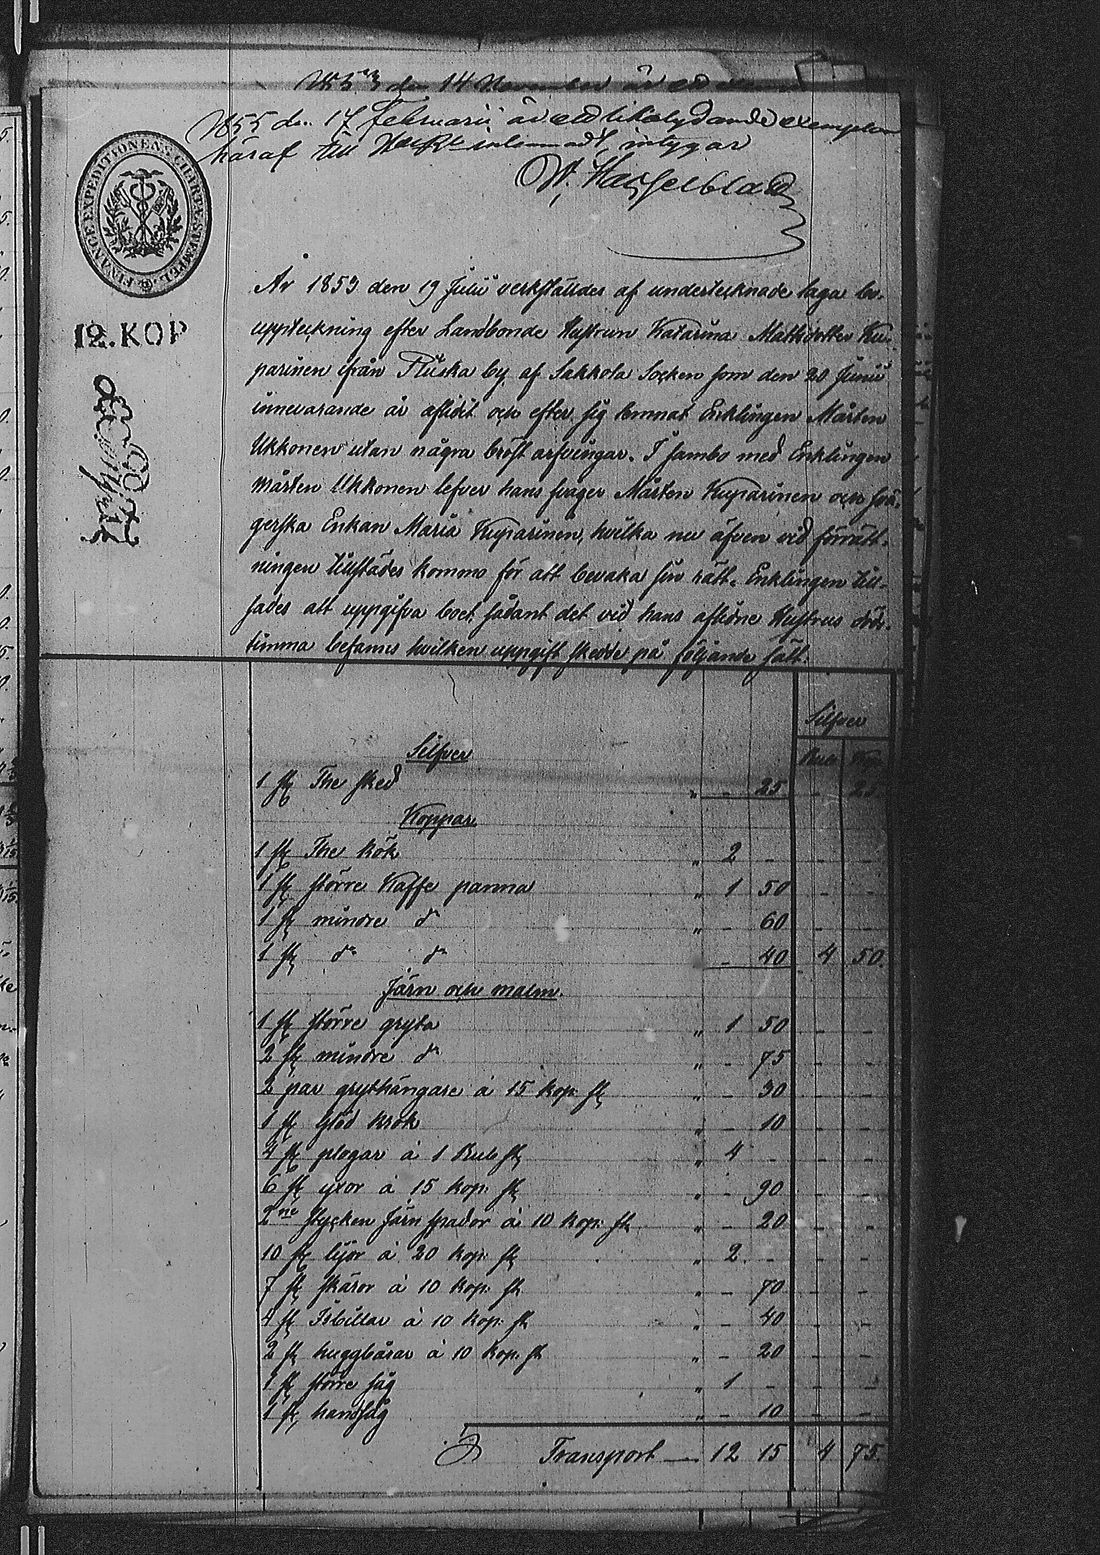 1855 den 17 Februarii är ett lika lydande exemplar
häraf till HäradsR inlemnadt, intygar
W. Hasselblad
FINANCE EXPEDITIONENS CHARTÆ STEMPEL
12. KOP
År 1853 den 19 Julii verkställdes af undertecknade laga bo-
uppteckning efter Landbonde Hustrun Katarina Mattsdotter Ku-
parinen ifrån Riiska by af Sakkola Socken som den 20 Junii
innevarande år aflidit och efter sig lemnat Enklingen Mårten
Ukkonen utan några bröst arfvingar. I sambo med Enklingen
Mårten Ukkonen lefver hans svåger Mårten Kuparinen och svä-
gerska Enkan Maria Kuparinen, hvilka nu äfven vid förrätt-
ningen tillstädes kommo för att bevaka sin rätt. Enklingen till-
sades att uppgifva boet sådant det vid hans aflidne Hustrus döds-
timma befanns hvilken uppgift skedde på följande sätt.
Silfver
Silfver
Rub. Kop.
1 st The sked " - 25 - 25
Koppar
1 st The kök " 2 - - -
1 st större Kaffe panna " 1 50 - -
1 st mindre do " - 60 - -
1 st do do - 40 4 50.
Järn och malm.
1 st större gryta " 1 50 - -
2 st mindre do " - 75 - -
2 par grythängare à 15 kop. st " - 30 - -
1 st Glöd krok " - 10 - -
4 st plogar à 1 Rub st " 4 - - -
6 st yxor à 15 kop. st " - 90 - -
2ne stycken Järn spador à 10 kop. st " - 20 - -
10 st lijor à 20 kop. st " 2 - - -
7 st skäror à 10 kop. st " - 70 - -
4 st Isbillar à 10 kop. st " - 40 - -
2 st huggbårar à 10 kop. st " - 20 - -
1 st större såg " 1 - - -
1 st handsåg " - 10 - -
Transport — 12 15 4 75.